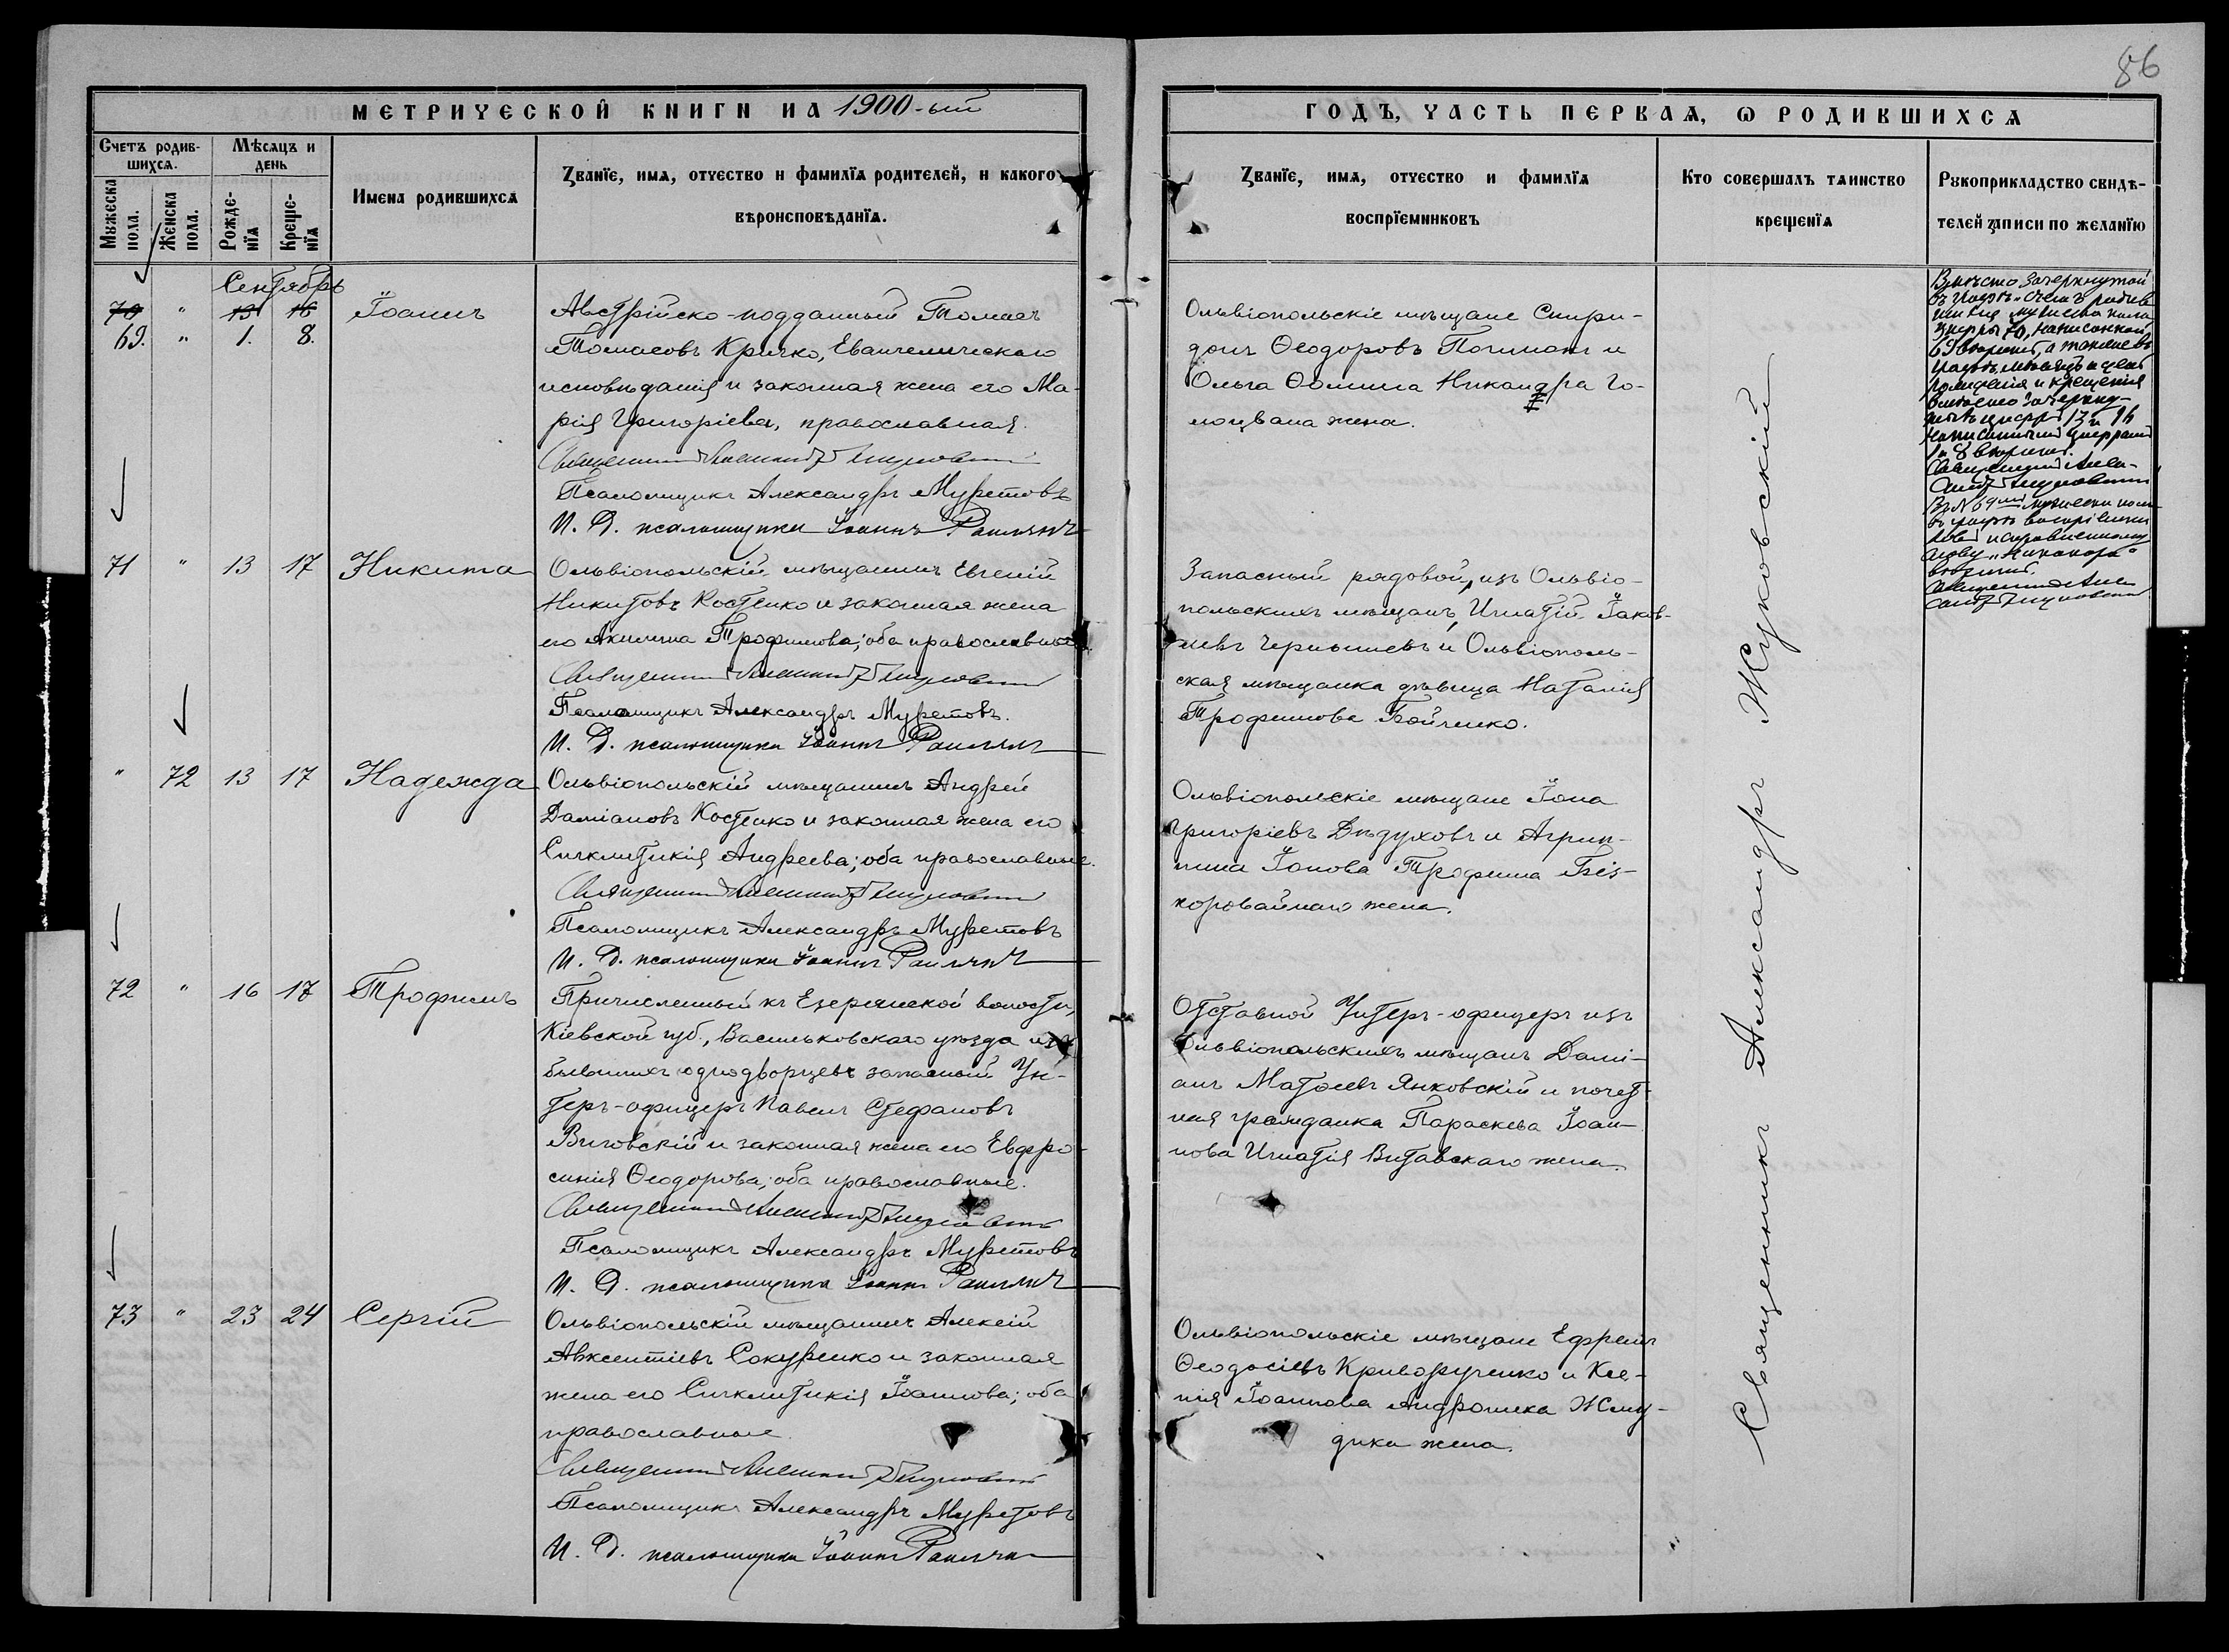 86
МЕТРИЧЕСКОЙ КНИГИ НА 1900-ый
ГОДЪ, ЧАСТЬ ПЕРВАЯ, Ѡ РОДИВШИХСЯ
Счетъ родив-
шихся.
Мужеска пола.
Женска пола.
Мѣсяцъ и
день
Рожде-
нїя
Креще-
нїя
Имена родившихся
Званїе, имя, отчество и фамилїя родителей, и какого
вѣроисповѣданїя.
Званїе, имя, отчество и фамилїя
воспрїемниковъ
Кто совершалъ таинство
крещенїя
Рукоприкладство свидѣ-
телей записи по желанїю
Сентябрь
70 " 13 16 Іоаннъ
69. " 1. 8.
Австрійско-подданный Томасъ
Томасовъ Кричко, Евангелическаго
исповѣданія и законная жена его Ма-
рія Григоріева, православная.
Священникъ Александръ Жуковскій
Псаломщикъ Александръ Муретовъ
И. Д. псаломщика Іоаннъ
Ольвіопольскіе мѣщане Спири-
донъ Ѳеодоровъ и
Ольга Ѳомина Никандра Го-
лоцвана жена.
Вмѣсто зачеркнутой
въ графѣ "счетъ родив
шихся мужеска пола
цифры 70, написанной
69 вѣрить, а также въ
графѣ мѣсяцъ и день
рожденія и крещенія
вмѣсто зачеркну-
тыхъ цифръ 13 и 16
написаннымъ цифрамъ
1 и 8 вѣрить.
Священникъ Алек-
сандръ Жуковскій
Въ № 69 мужеска пола
въ графѣ воспріемни
ковъ исправленному
слову "Никандра"
вѣрить.
Священникъ Алек
сандръ Жуковскій
71 " 13 17 Никита
Ольвіопольскій мѣщанинъ Евгеній
Никитовъ Костенко и законная жена
его Акилина Трофимова; оба православные.
Священникъ Александръ Жуковскій
Псаломщикъ Александръ Муретовъ.
И. Д. псаломщика Іоаннъ
Запасный рядовой, изъ Ольвіо-
польскихъ мѣщанъ, Игнатій Іаков-
левъ Чернышевъ и Ольвіополь-
ская мѣщанка дѣвица Наталія
Трофимова Бойченко.
" 72 13 17 Надежда
Ольвіопольскій мѣщанинъ Андрей
Даміановъ Костенко и законная жена его
Синклитикія Андреева; оба православные.
Священникъ Александръ Жуковскій
Псаломщикъ Александръ Муретовъ
И. Д. псаломщика Іоаннъ
Ольвіопольскіе мѣщане Іона
Григоріевъ Дѣдуховъ и Агрип-
пина Іонова Трофима Без-
коровайнаго жена.
72 " 16 17 Трофимъ
Причисленный къ Езерянской волости,
Кіевской губ., Васильковскаго уѣзда изъ
бывшихъ однодворцевъ запасный Ун-
теръ-офицеръ Павелъ Стефановъ
Виговскій и законная жена его Евфро-
синія Ѳеодорова; оба православные.
Священникъ Александръ Жуковскій
Псаломщикъ Александръ Муретовъ
И. Д. псаломщика Іоаннъ
Отставной Унтеръ-офицеръ изъ
Ольвіопольскихъ мѣщанъ Дамі-
анъ Матѳеевъ Янковскій и почет-
ная гражданка Параскева Іоан-
нова Игнатія Витавскаго жена.
73 " 23 24 Сергій
Ольвіопольскій мѣщанинъ Алексій
Авксентіевъ Сокуренко и законная
жена его Синклитикія Іоаннова; оба
православные.
Священникъ Александръ Жуковскій
Псаломщикъ Александръ Муретовъ
И. Д. псаломщика Іоаннъ
Ольвіопольскіе мѣщане Ефремъ
Ѳеодосіевъ Криворученко и Ксе-
нія Іоаннова Андроника Жму-
дика жена.
Священникъ Александръ Жуковскій